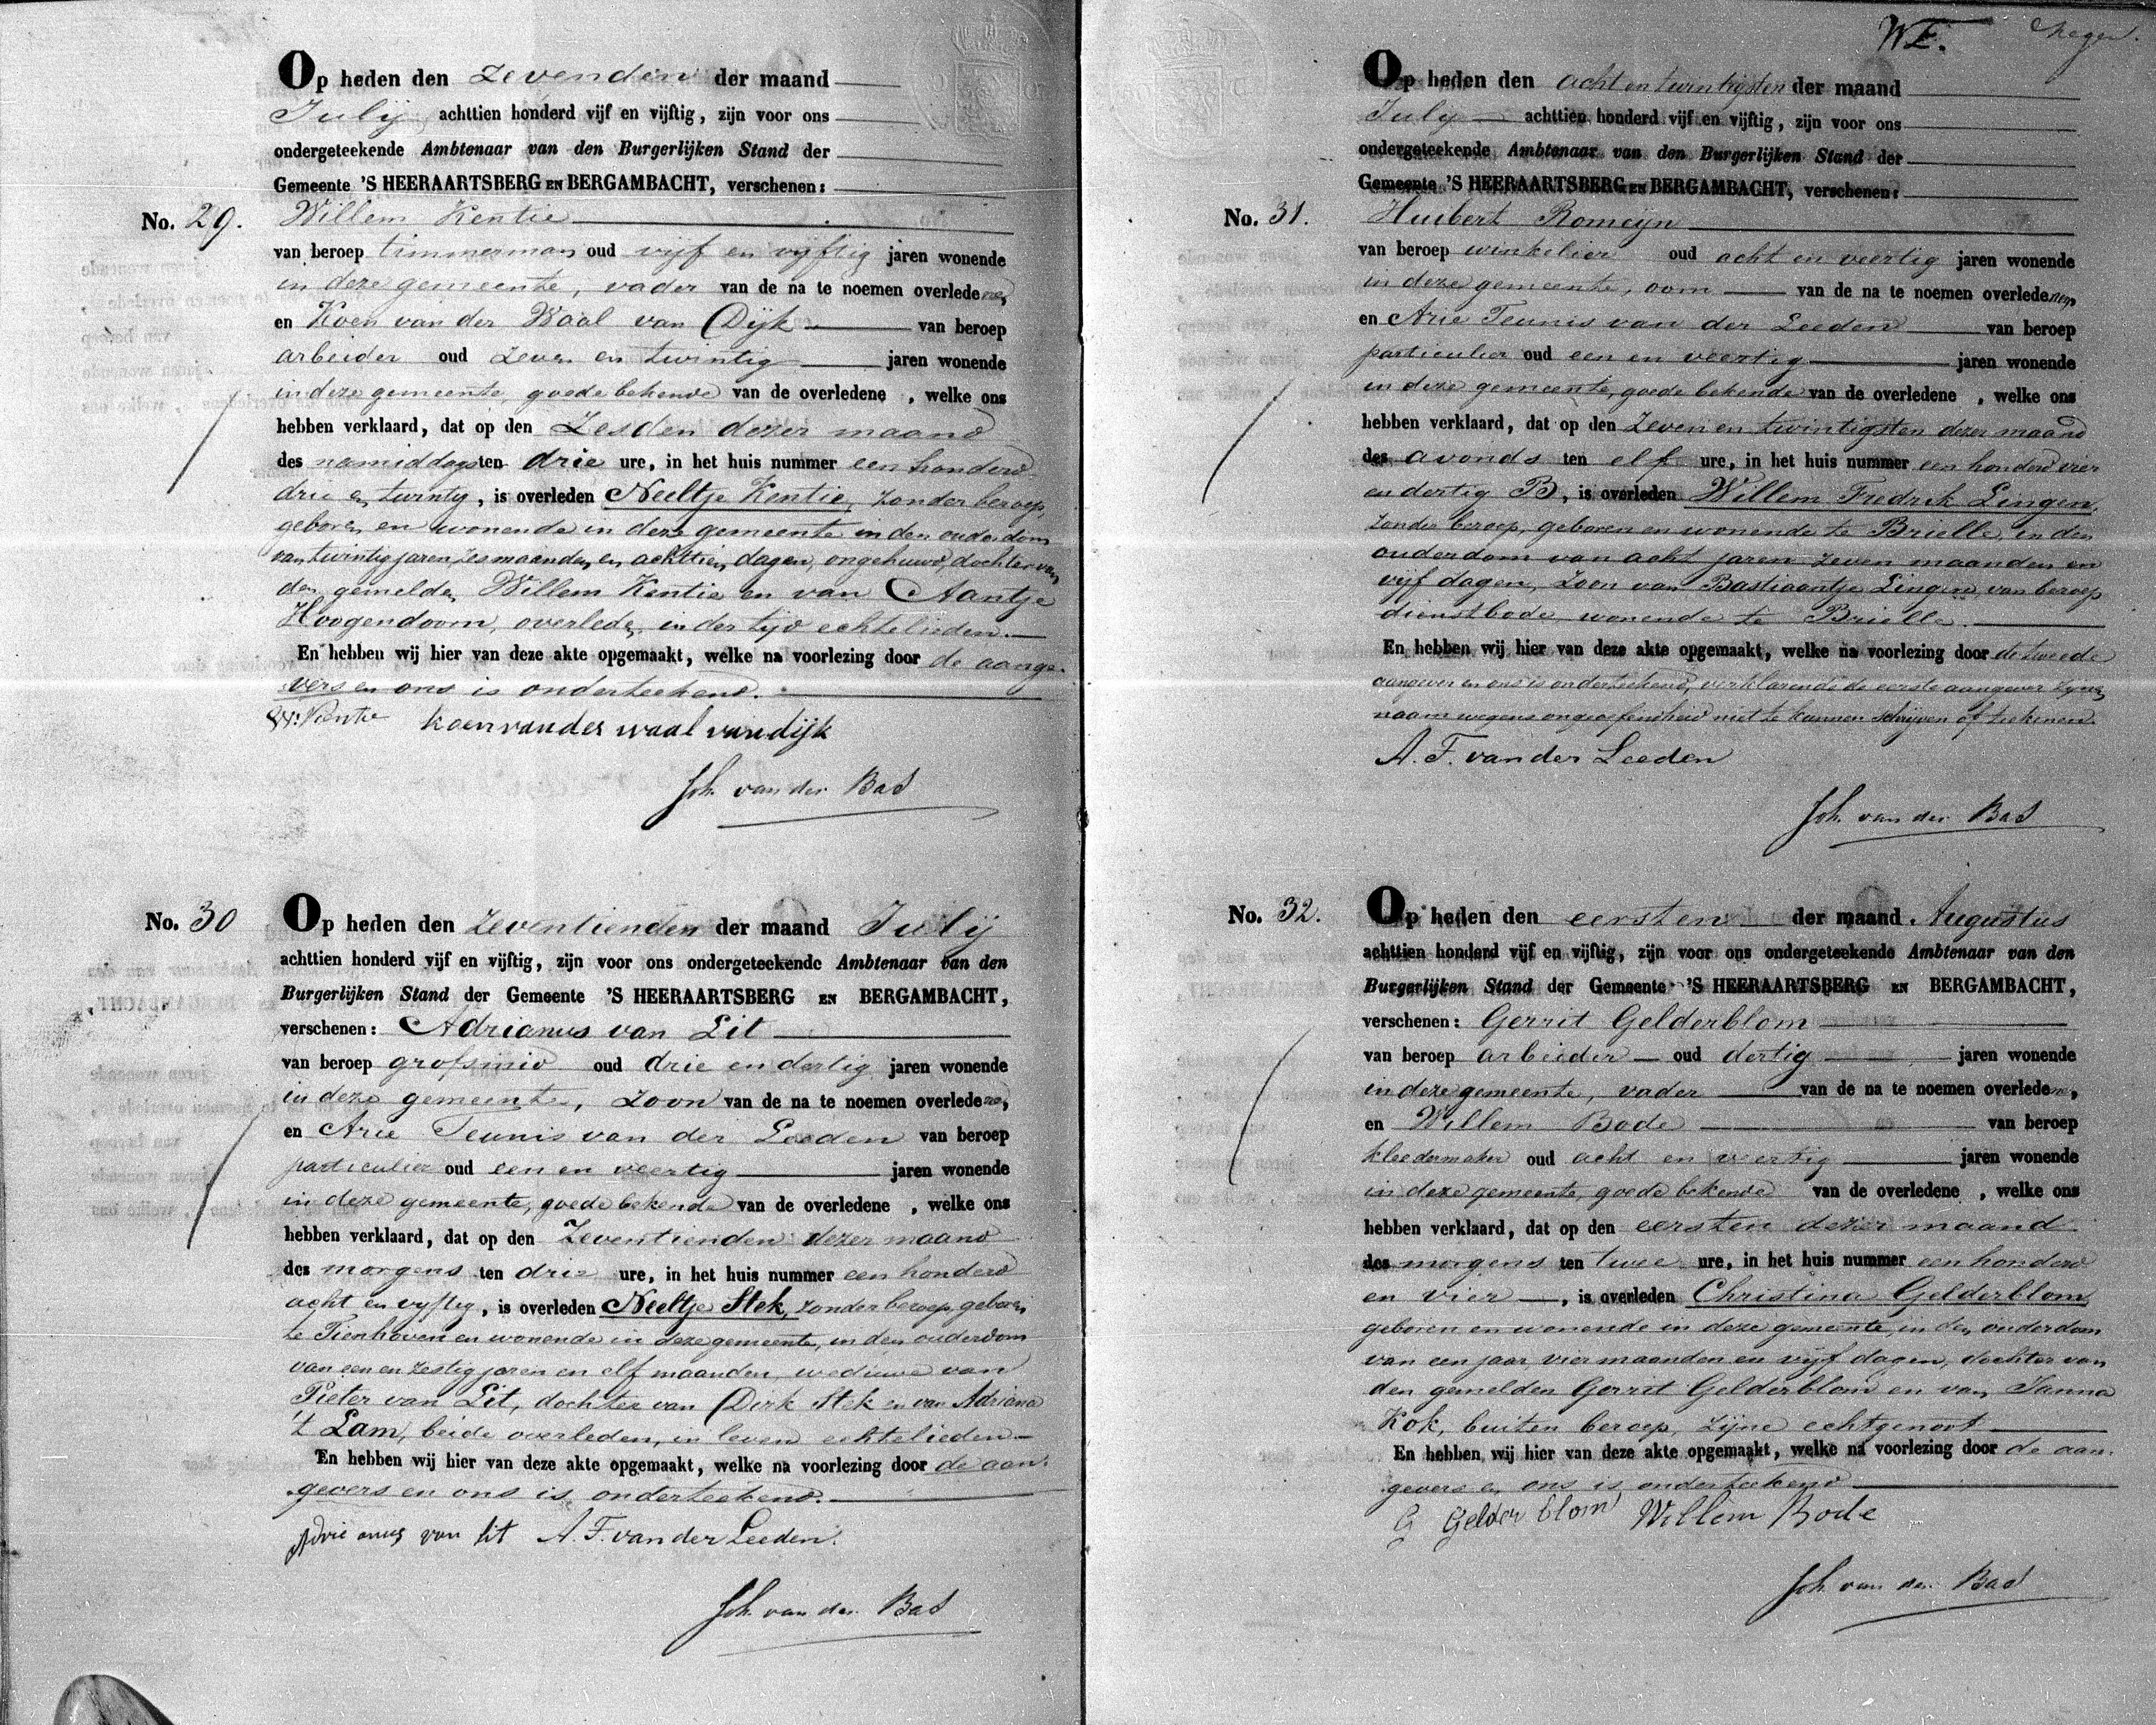 Op heden den Zevenden der maand
Julij achttien honderd vijf en vijftig, zijn voor ons
ondergeteekende Ambtenaar van den Burgerlijken Stand der
Gemeente 'S HEERAARTSBERG EN BERGAMBACHT, verschenen:
No. 29. Willem Kentie
van beroep timmerman oud vijf en vijftig jaren wonende
in deze gemeente, vader van de na te noemen overledene,
en Koen van der Waal van Dijk van beroep
arbeider oud zeven en twintig jaren wonende
in deze gemeente, goede bekende van de overledene , welke ons
hebben verklaard, dat op den Zesden dezer maand
des namiddags ten drie ure, in het huis nummer een honderd
drie en twintig, is overleden Neeltje Kentie, zonder beroep,
geboren en wonende in deze gemeente in den ouderdom
van twintig jaren, zes maanden en achttien dagen, ongehuwd, dochter van
den gemelden Willem Kentie en van Aantje
Hoogendoorn, overleden, in der tijd echtelieden.
En hebben wij hier van deze akte opgemaakt, welke na voorlezing door de aange-
vers en ons is onderteekend.
W: Kentie koen van der waal van dijk
Joh. van der Bas
No. 30 Op heden den Zeventienden der maand Julij
achttien honderd vijf en vijftig, zijn voor ons ondergeteekende Ambtenaar van den
Burgerlijken Stand der Gemeente 'S HEERAARTSBERG EN BERGAMBACHT,
verschenen: Adrianus van Lit
van beroep grofsmid oud drie en dertig jaren wonende
in deze gemeente, zoon van de na te noemen overledene,
en Arie Teunis van der Leeden van beroep
particulier oud een en veertig jaren wonende
in deze gemeente, goede bekende van de overledene , welke ons
hebben verklaard, dat op den Zeventienden dezer maand
des morgens ten drie ure, in het huis nummer een honderd
acht en vijftig, is overleden Neeltje Stek, zonder beroep, geboren
te Tienhoven en wonende in deze gemeente, in den ouderdom
van een en zestig jaren en elf maanden, weduwe van
Pieter van Lit, dochter van Dirk Stek en van Adriana
't Lam, beide overleden, in leven echtelieden.
En hebben wij hier van deze akte opgemaakt, welke na voorlezing door de aan-
gevers en ons is onderteekend.
Adrie anus van lit A. T. van der Leeden.
Joh. van der Bas
WE.
Op heden den acht en twintigsten der maand
July achttien honderd vijf en vijftig, zijn voor ons
ondergeteekende Ambtenaar van den Burgerlijken Stand der
Gemeente 'S HEERAARTSBERG EN BERGAMBACHT, verschenen:
No. 31. Huibert Romeyn
van beroep winkelier oud acht en veertig jaren wonende
in deze gemeente, oom van de na te noemen overledenen,
en Arie Teunis van der Leeden van beroep
particulier oud een en veertig jaren wonende
in deze gemeente, goede bekende van de overledene , welke ons
hebben verklaard, dat op den Zeven en twintigsten dezer maand
des avonds ten elf ure, in het huis nummer een honderd vier
en dertig B, is overleden Willem Fredrik Lingen,
zonder beroep, geboren en wonende te Brielle, in den
ouderdom van acht jaren zeven maanden en
vijf dagen, zoon van Bastiaantje Lingen, van beroep
dienstbode, wonende te Brielle.
En hebben wij hier van deze akte opgemaakt, welke na voorlezing door de tweede
aangever en ons is onderteekend, verklarende de eerste aangever zynen
naam wegens ongeoefendheid niet te kunnen schrijven of teekenen.
A. T. van der Leeden
Joh. van der Bas
No. 32. Op heden den eersten der maand Augustus
achttien honderd vijf en vijftig, zijn voor ons ondergeteekende Ambtenaar van den
Burgerlijken Stand der Gemeente 'S HEERAARTSBERG EN BERGAMBACHT,
verschenen: Gerrit Gelderblom
van beroep arbeider oud dertig jaren wonende
in deze gemeente, vader van de na te noemen overledene,
en Willem Bode van beroep
kleedermaker oud acht en veertig jaren wonende
in deze gemeente, goede bekende van de overledene , welke ons
hebben verklaard, dat op den eersten dezer maand
des morgens ten twee ure, in het huis nummer een honderd
en vier , is overleden Christina Gelderblom
geboren en wonende in deze gemeente, in den ouderdom
van een jaar vier maanden en vijf dagen, dochter van
den gemelden Gerrit Gelderblom en van Janna
Kok, buiten beroep, zijne echtgenoot
En hebben wij hier van deze akte opgemaakt, welke na voorlezing door de aan-
gevers en ons is onderteekend
G Gelder blom Willem Bode
Joh. van der Bas